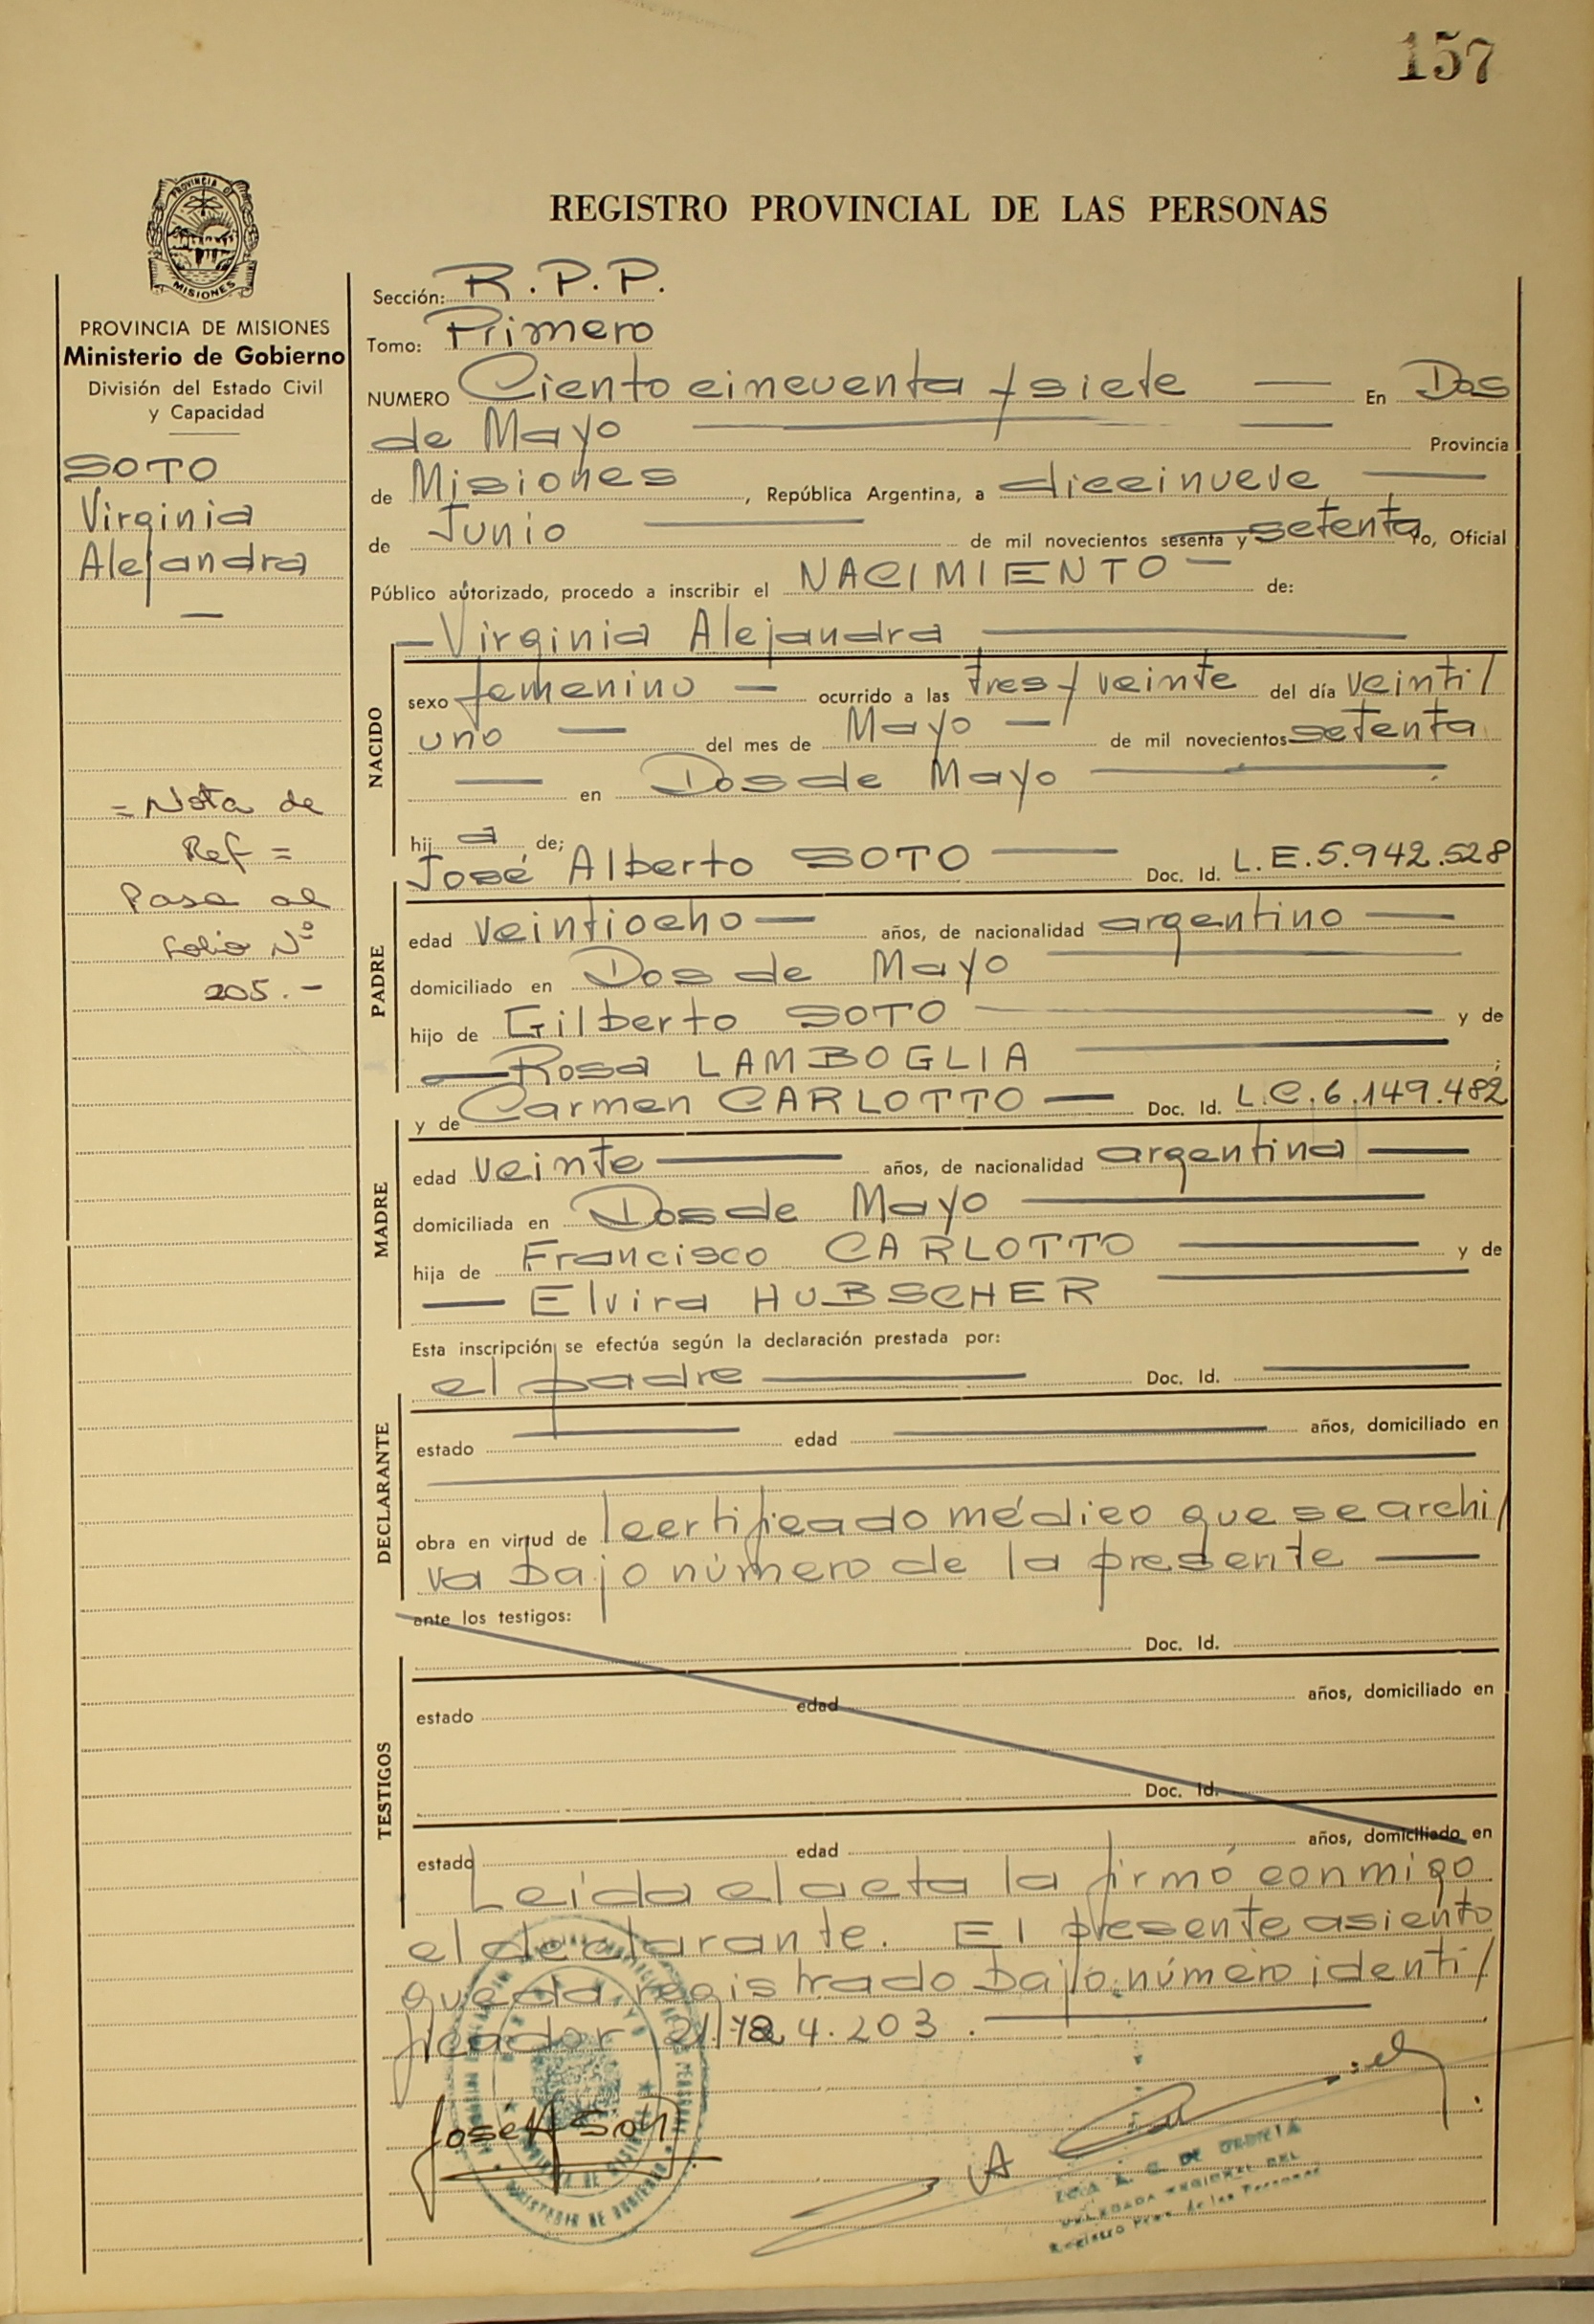 157
PROVINCIA DE
MISIONES
REGISTRO PROVINCIAL DE LAS PERSONAS
PROVINCIA DE MISIONES
Ministerio de Gobierno
División del Estado Civil
y Capacidad
SOTO
Virginia
Alejandra
—
= Nota de
Ref =
Pasa al
folio Nº
205.-
Sección: R.P.P.
Tomo: Primero
NUMERO Ciento cincuenta y siete — En Dos
de Mayo — Provincia
de Misiones, República Argentina, a diecinueve —
de Junio — de mil novecientos sesenta y setenta Yo, Oficial
Público autorizado, procedo a inscribir el NACIMIENTO — de:
— Virginia Alejandra —
NACIDO
sexo femenino — ocurrido a las tres y veinte del día veinti/
uno — del mes de Mayo — de mil novecientos setenta
— en Dos de Mayo —
hija de;
José Alberto SOTO — Doc. Id. L.E.5.942.528
PADRE
edad veintiocho — años, de nacionalidad argentino —
domiciliado en Dos de Mayo —
hijo de Gilberto SOTO — y de
— Rosa LAMBOGLIA — ;
y de Carmen CARLOTTO — Doc. Id. L.C.6.149.482
MADRE
edad veinte — años, de nacionalidad argentina —
domiciliada en Dos de Mayo —
hija de Francisco CARLOTTO — y de
— Elvira HUBSCHER —
Esta inscripción se efectúa según la declaración prestada por:
el padre — Doc. Id. —
DECLARANTE
estado — edad — años, domiciliado en
—
obra en virtud de certificado médico que se archi/
va bajo número de la presente —
ante los testigos:
Doc. Id.
TESTIGOS
estado edad años, domiciliado en
Doc. Id.
estado edad años, domiciliado en
Leída el acta la firmó conmigo
el declarante. El presente asiento
queda registrado bajo número identi/
ficador 4.203. —
José A Soto
MINISTERIO DE GOBIERNO
DELEGADA REGIONAL DEL
Registro Prov. de las Personas